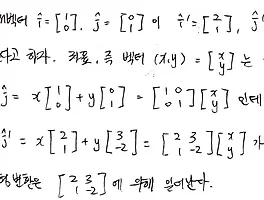 벡터 î = [1 0], ĵ = [0 1] 이 î' = [2 1], ĵ'
다고 하자. 좌표, 즉 벡터 (x,y) = [x y] 는
ĵ = x[1 0] + y[0 1] = [1 0 0 1][x y] 인데
ĵ' = x[2 1] + y[3 -2] = [2 3 1 -2][x y] 가
형변환은 [2 3 1 -2] 에 의해 일어난다.